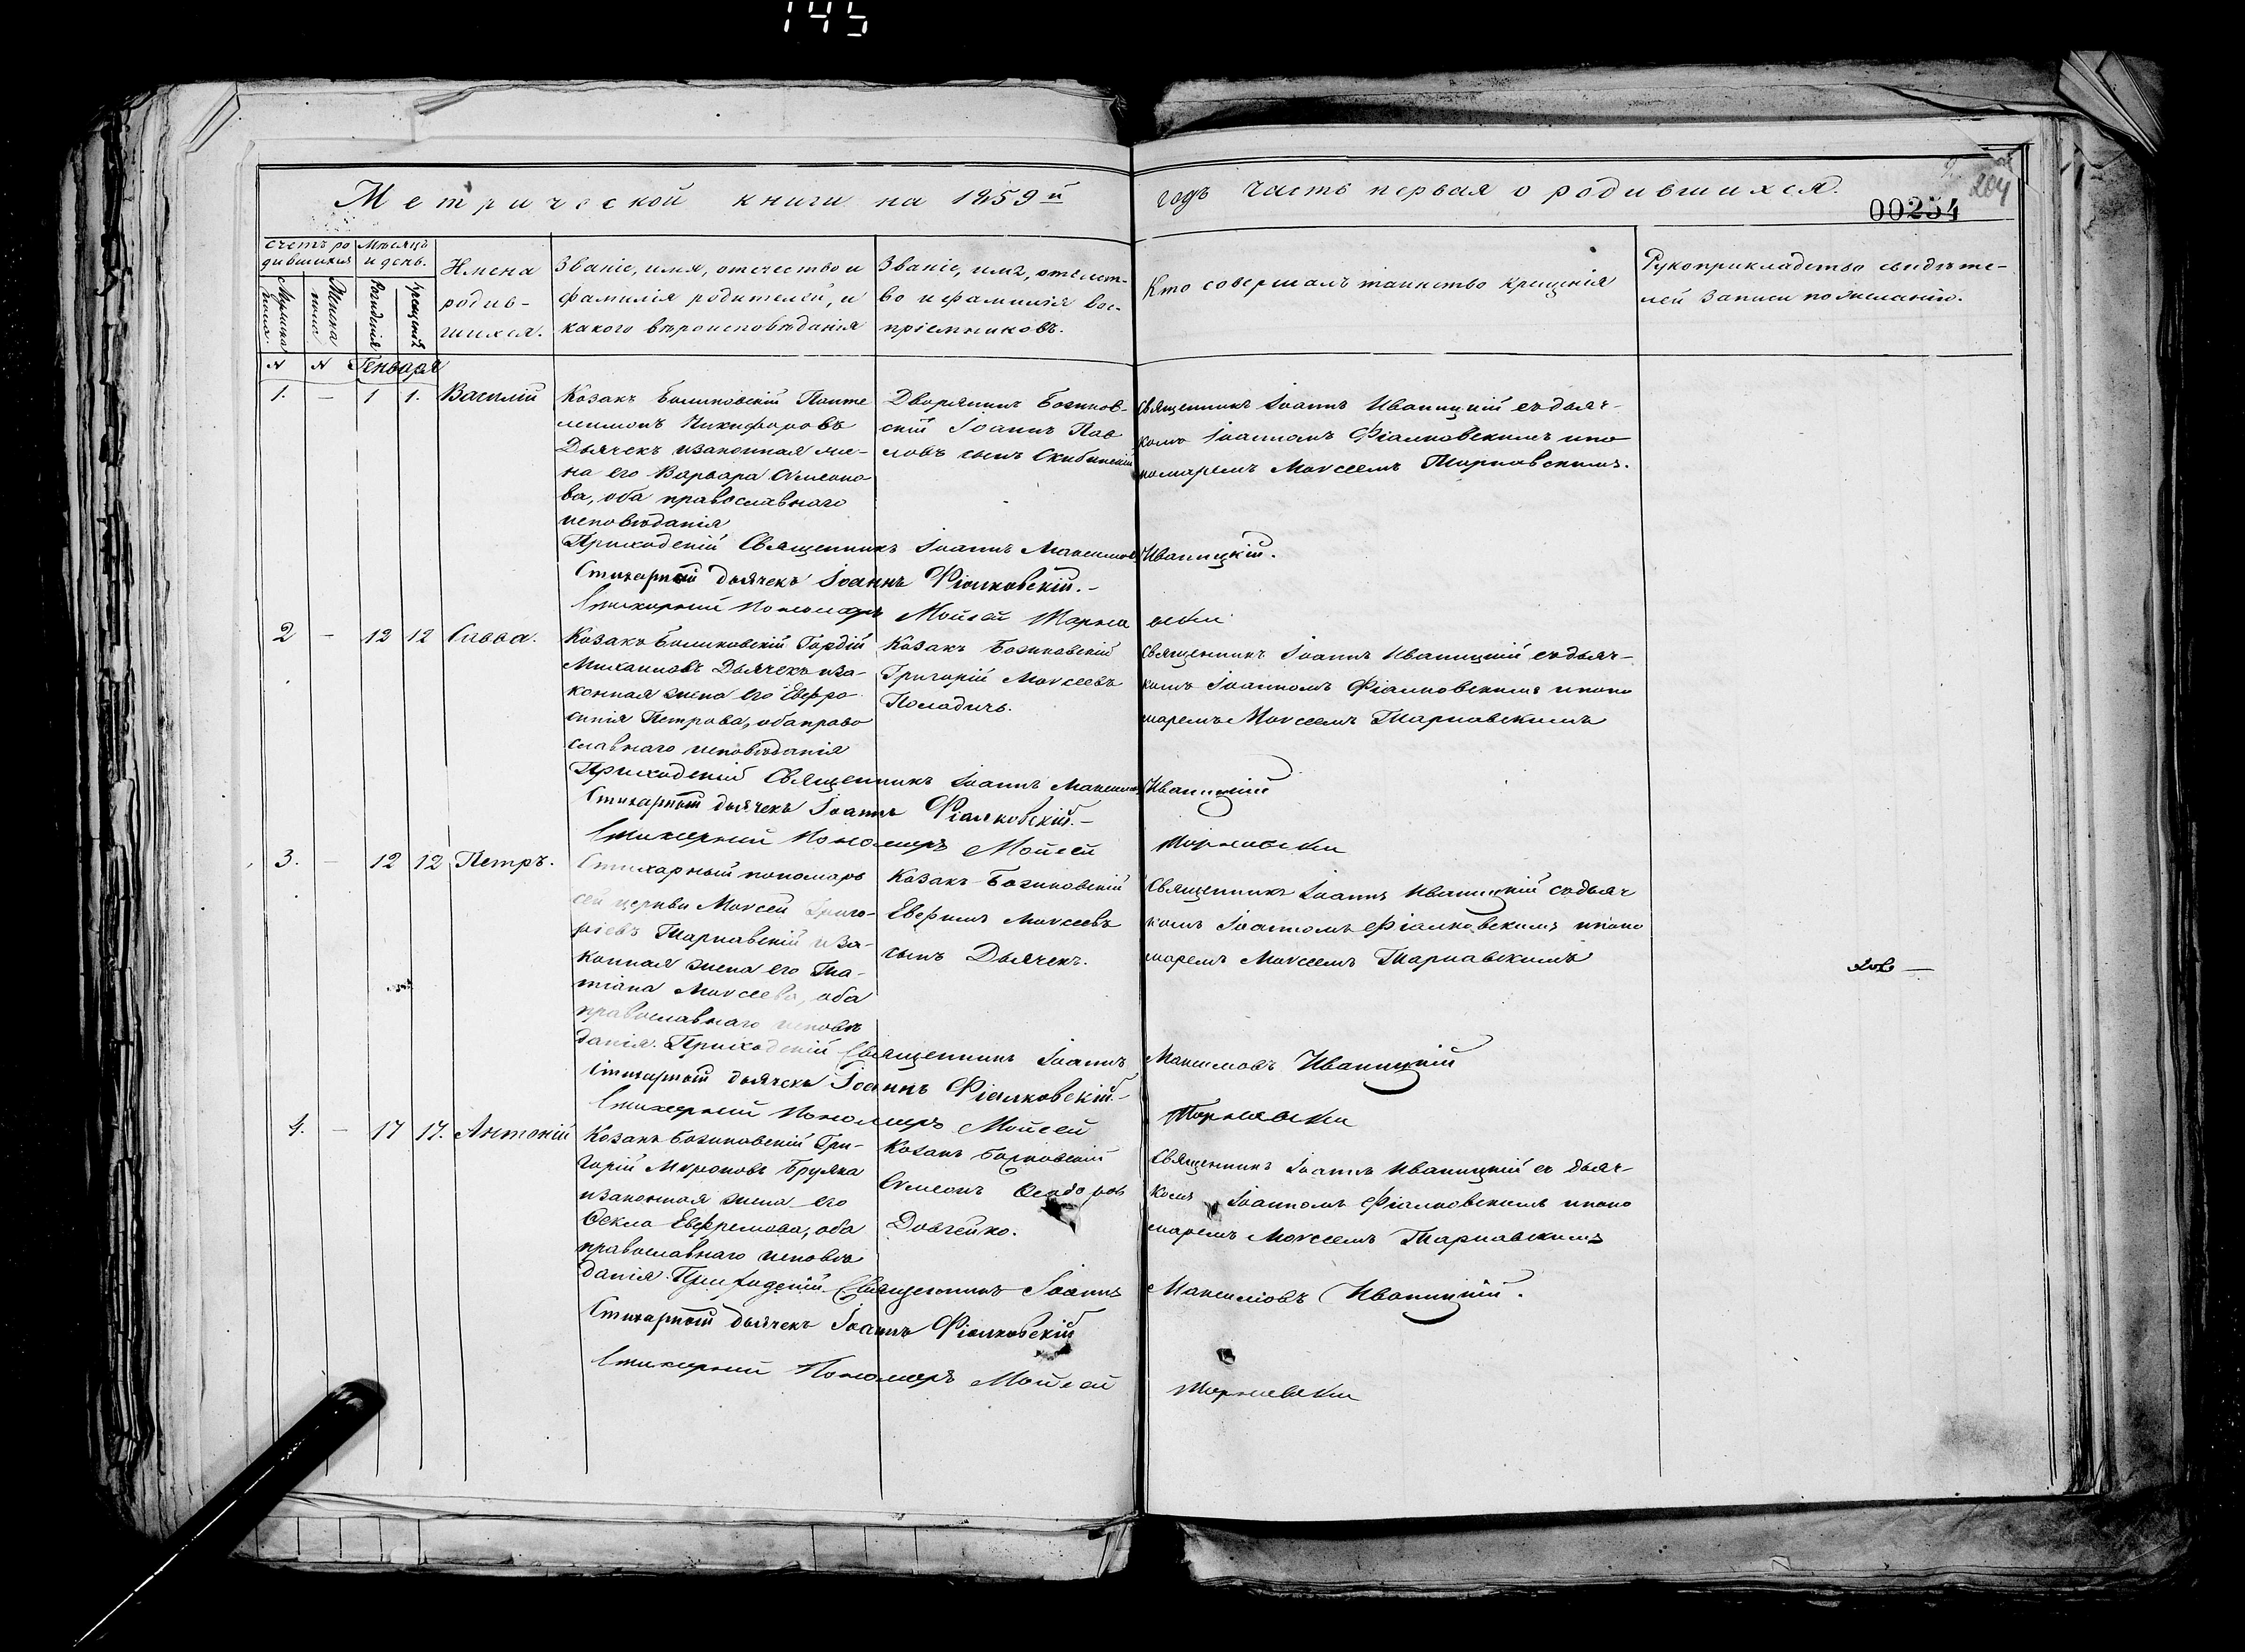 145
Метрической книги на 1859й годъ часть первая о родившихся.
204
00254
счетъ ро
дившихся
Мѣсяцъ
и день.
Мужска
пола.
Женска
пола
Рожденія
крещенія
Имена
родив-
шихся.
Званіе, имя, отечество и
фамилія родителей, и
какого вѣроисповѣданія
Званіе, имя, отечест-
во и фамилія вос-
пріемниковъ.
Кто совершалъ таинство крещенія
Рукоприкладство свидѣте-
лей записи по желанію.
N N Генваря
1. – 1 1. Василій
Козакъ Панте
леимонъ Никифоровъ
Дьячекъ и законная же-
на его Варвара Симеоно
ва, оба православнаго
исповѣданія
Дворянинъ
Іоаннъ Пав
ловъ сынъ
Священникъ Іоаннъ Иваницкій съ дьяч-
комъ Іоанномъ Фіалковскимъ и по
номаремъ Моѵсеемъ Тарнавскимъ.
Приходскій Священникъ Іоаннъ Максимовъ Иваницкій.
Стихарный дьячекъ Іоаннъ Фіалковскій.-
Стихарний Пономаръ Мойсей Тарна вски
2 – 12 12 Савва.
Козакъ Гордій
Михаиловъ Дьячекъ и за-
конная жена его Евфро-
синія Петрова, оба право
славнаго исповѣданія
Козакъ
Григорій Моѵсеевъ
Священникъ Іоаннъ Иваницкій съ дьяч-
комъ Іоанномъ Фіалковскимъ и поно
маремъ Моѵсеемъ Тарнавскимъ
Приходскій Священникъ Іоаннъ Максимовъ Иваницкій
Стихарный дьячекъ Іоаннъ Фіалковскій.-
Стихарний Пономаръ Мойсей Тарнавски
3. – 12 12 Петръ.
Стихарный пономарь
сей церкви Моѵсей Григо-
ріевъ Тарнавскій и за-
конная жена его Та-
тіана Моѵсеева, оба
православнаго исповѣ
данія.
Козакъ
Евфимъ Моѵсеевъ
сынъ Дьячекъ.
Священникъ Іоаннъ Иваницкій съ дьяч
комъ Іоанномъ Фіалковскимъ и поно
маремъ Моѵсеемъ Тарнавскимъ
Приходскій Священникъ Іоаннъ Максимовъ Иваницкій
Стихарный дьячекъ Іоаннъ Фіалковскій.-
Стихарний Пономаръ Мойсей Тарнавски
4. – 17 17. Антоній
Козакъ Гри-
горій Мироновъ
и законная жена его
Ѳекла Евфремова, оба
православнаго исповѣ
данія.
Козакъ
Симеонъ Ѳеодоровъ
Довгейко.
Священникъ Іоаннъ Иваницкій съ дьяч-
комъ Іоанномъ Фіалковскимъ и поно
маремъ Моѵсеемъ Тарнавскимъ
Приходскій Священникъ Іоаннъ Максимовъ Иваницкій.
Стихарный дьячекъ Іоаннъ Фіалковскій
Стихарний Пономаръ Мойсей Тарнавски